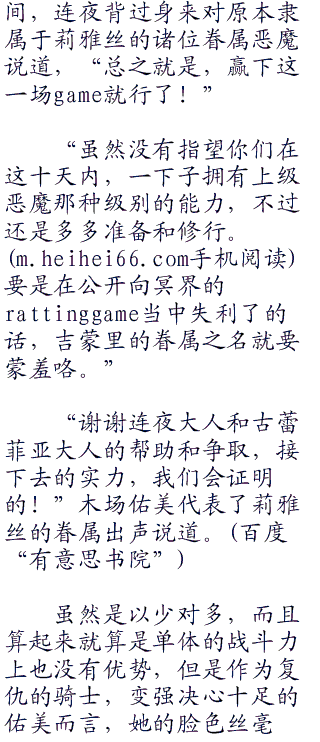 间，连夜背过身来对原本隶
属于莉雅丝的诸位眷属恶魔
说道，“总之就是，赢下这
一场game就行了！”
“虽然没有指望你们在
这十天内，一下子拥有上级
恶魔那种级别的能力，不过
还是多多准备和修行。
(m.heihei66.com手机阅读)
要是在公开向冥界的
rattinggame当中失利了的
话，吉蒙里的眷属之名就要
蒙羞咯。”
“谢谢连夜大人和古蕾
菲亚大人的帮助和争取，接
下去的实力，我们会证明
的！”木场佑美代表了莉雅
丝的眷属出声说道。(百度
“有意思书院”)
虽然是以少对多，而且
算起来就算是单体的战斗力
上也没有优势，但是作为复
仇的骑士，变强决心十足的
佑美而言，她的脸色丝毫